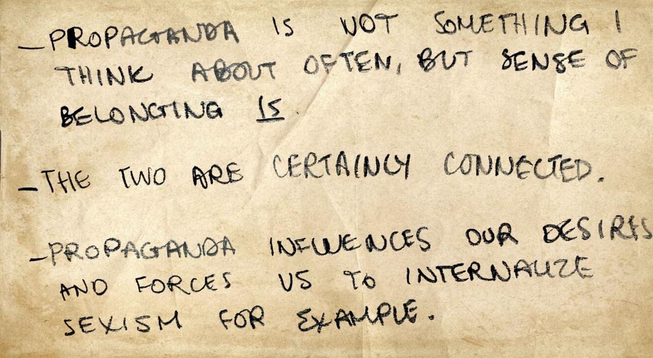 - PROPAGANDA IS NOT SOMETHING I
THINK ABOUT OFTEN, BUT SENSE OF
BELONGING IS.
- THE TWO ARE CERTAINLY CONNECTED.
- PROPAGANDA INFLUENCES OUR DESIRES
AND FORCES US TO INTERNALIZE
SEXISM FOR EXAMPLE.